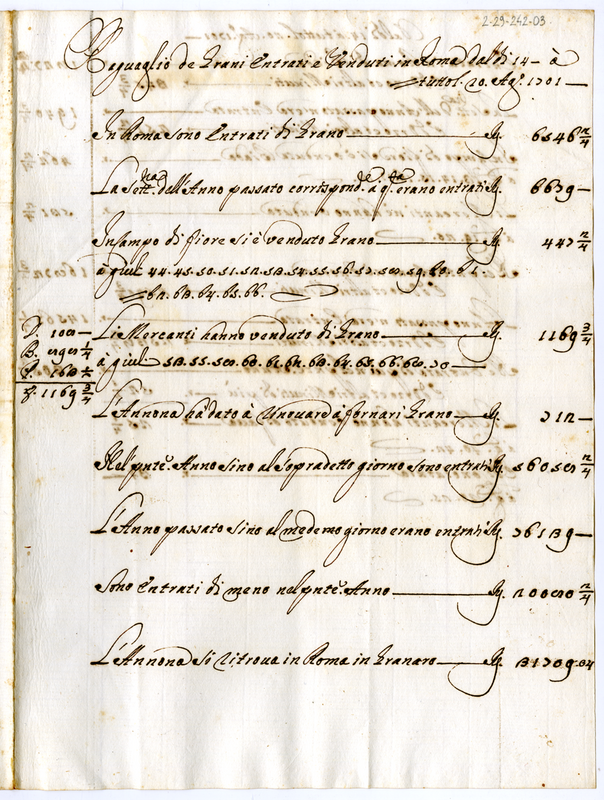 2-29-242-03
Raguaglio de Grani Entrati e Venduti in Roma dal dì 14 — à
tutto l. 20. Agº. 1701 —
In Roma sono Entrati di Grano — Rg. 6546 2/4
La Settna. dell'Anno passato corrispond.te à q.sta erano entrati Rg. 6639 —
In Campo di fiore si è venduto Grano — Rg. 447 2/4
à giul. 44. 45. 50. 51. 52. 53. 54. 55. 56. 57. 58. 59. 60. 61.
62. 63. 64. 65. 66.
Li Mercanti hanno venduto di Grano — Rg. 1169 3/4
à giul. 53. 55. 58. 60. 61. 62. 63. 64. 65. 66. 68. 70 —
D. 108 —
B. 898 1/4
P. 163 2/4
R. 1169 3/4
L'Annona hà dato à fornari Grano — Rg. 712 —
Nel pnte. Anno sino al sopradetto giorno sono entrati Rg. 56058 2/4
L'Anno passato sino al medemo giorno erano entrati Rg. 76139 —
Sono Entrati di meno nel pnte. Anno — Rg. 20080 2/4
L'Annona si ritroua in Roma in Granaro — Rg. 31709.04